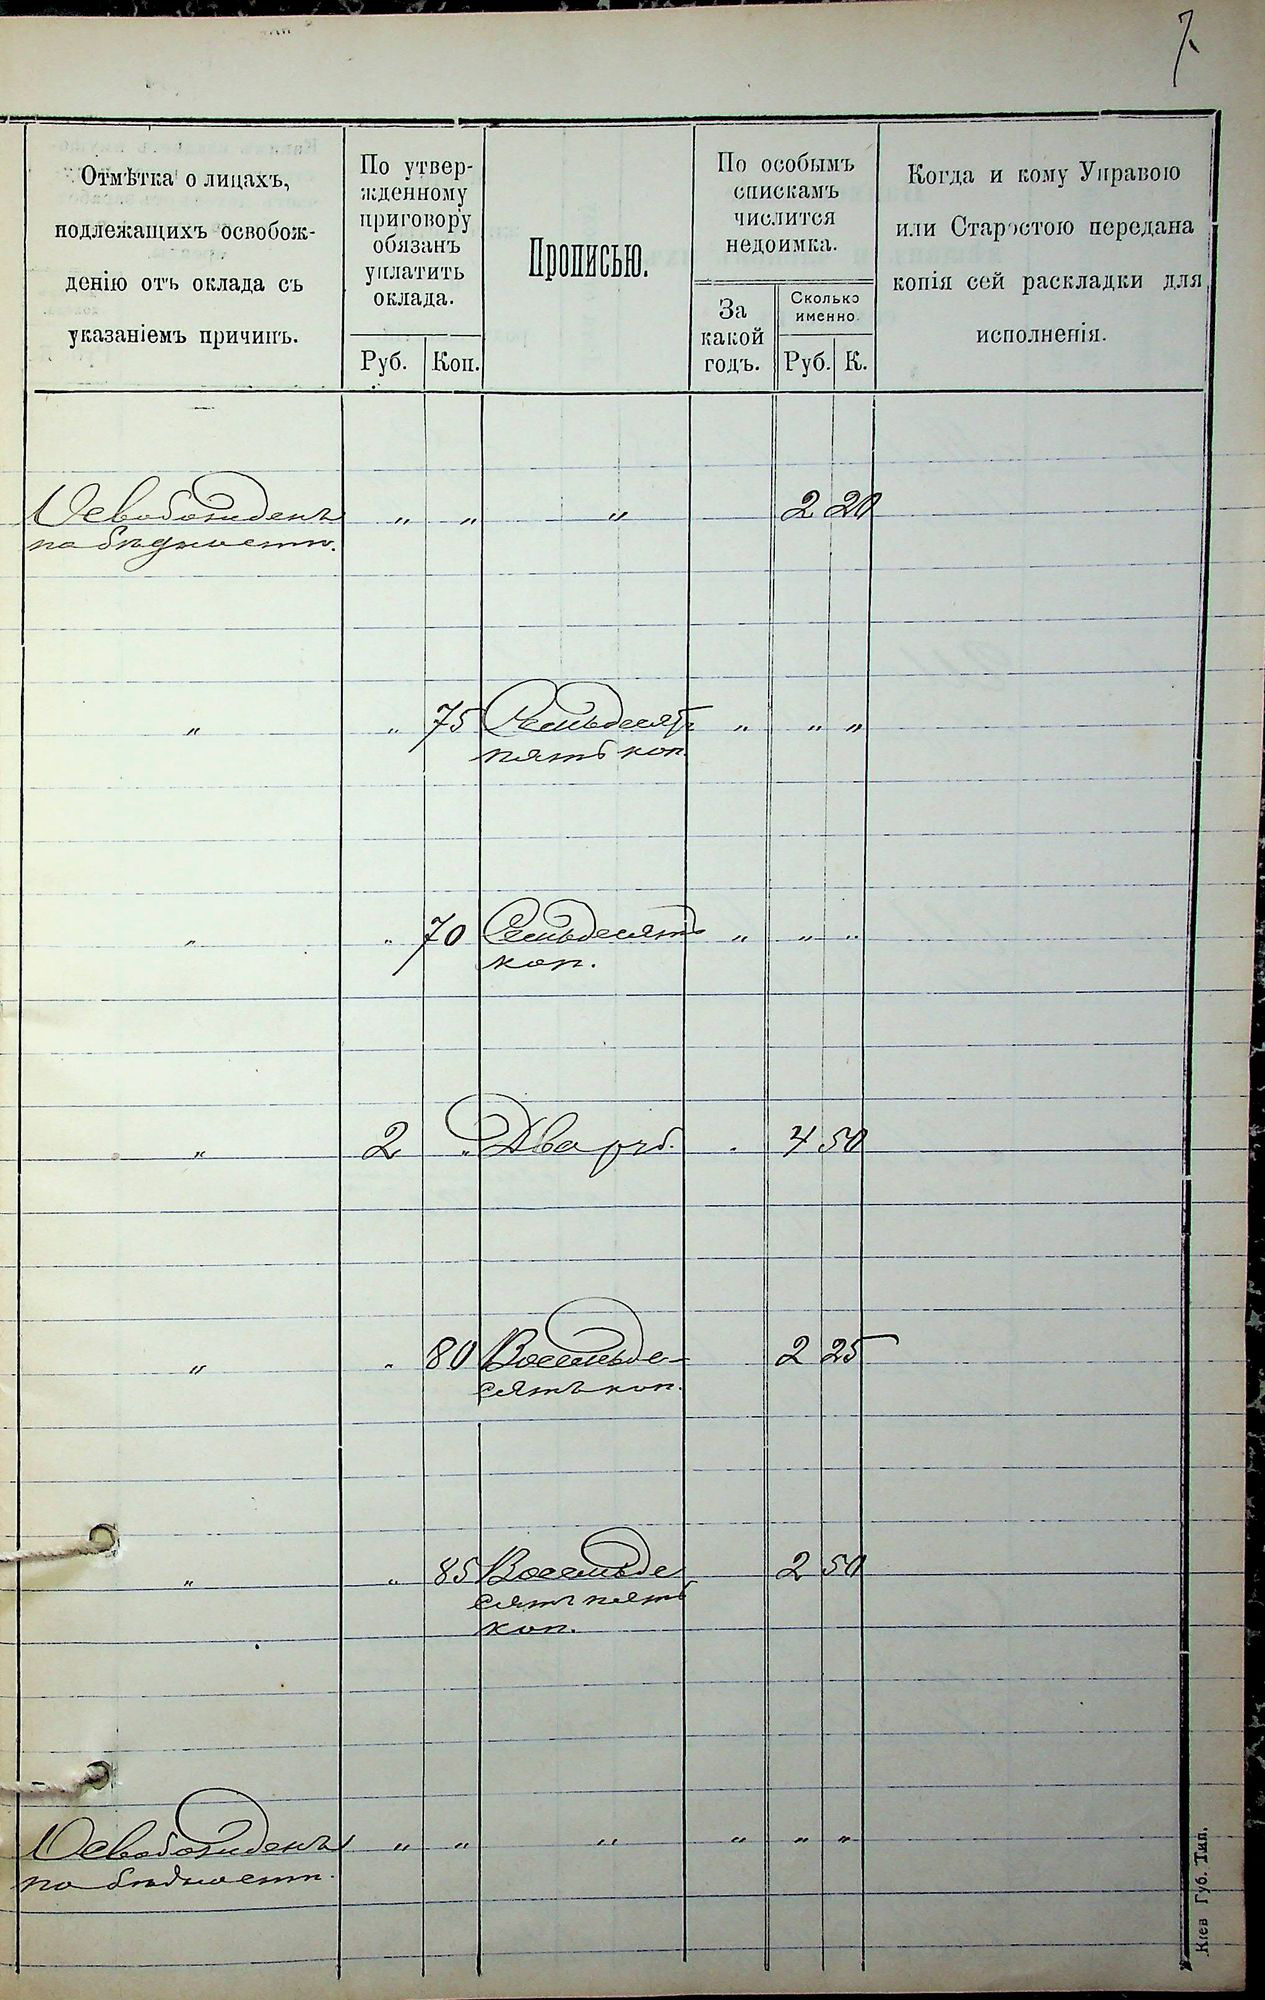 7
Отмѣтка о лицахъ,
подлежащихъ освобож-
денію отъ оклада съ
указаніемъ причинъ.
По утвер-
жденному
приговору
обязанъ
уплатить
оклада.
Руб. Коп.
Прописью.
По особымъ
спискамъ
числится
недоимка.
За
какой
годъ.
Сколько
именно.
Руб. К.
Когда и кому Управою
или Старостою передана
копія сей раскладки для
исполненія.
Освобожденъ „ „ „ 2 20
по бѣдности.
„ „ 75 Семьдесятъ „ „ „
пять коп.
„ „ 70 Семьдесятъ „ „ „
коп.
„ 2 „ Два руб. „ 4 50
„ „ 80 Восемьде- 2 25
сятъ коп.
„ „ 85 Восемьде 2 50
сятъ пять
коп.
Освобожденъ „ „ „ „ „ „
по бѣдности.
Кіев Губ. Тип.